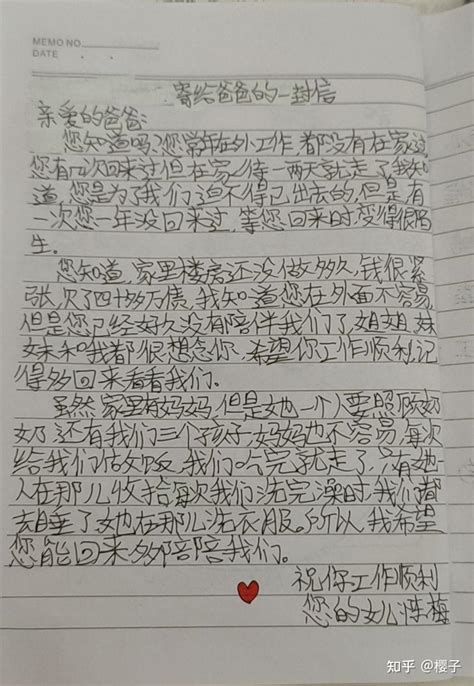 MEMO NO.
DATE
寄给爸爸的一封信
亲爱的爸爸:
您知道吗?您常年在外工作,都没有在家过
您有几次回来过但在家待一两天就走了我知
道,您是为了我们了迫不得已出去的,但是有
一次您一年没回来过,等您回来时变得很陌
生。
您知道,家里楼房还没做多久,钱很紧
张,欠了四十多万债,我知道您在外面不容易
但是您已经好久没有陪伴我们了,姐姐,妹
妹和我都很想念你,希望你工作顺利,记
得多回来看看我们。
虽然家里有妈妈,但是她一个人要照顾奶
奶还有我们三个孩子,妈妈也不容易,每次
给我们做饭,我们吃完就走了,只有她
人在那儿收拾每次我们洗完澡时,我们都
去睡了她在那儿洗衣服。所以,我希望
您能回来多陪陪我们。
祝你工作顺利
您的女儿陈梅
知乎 @樱子